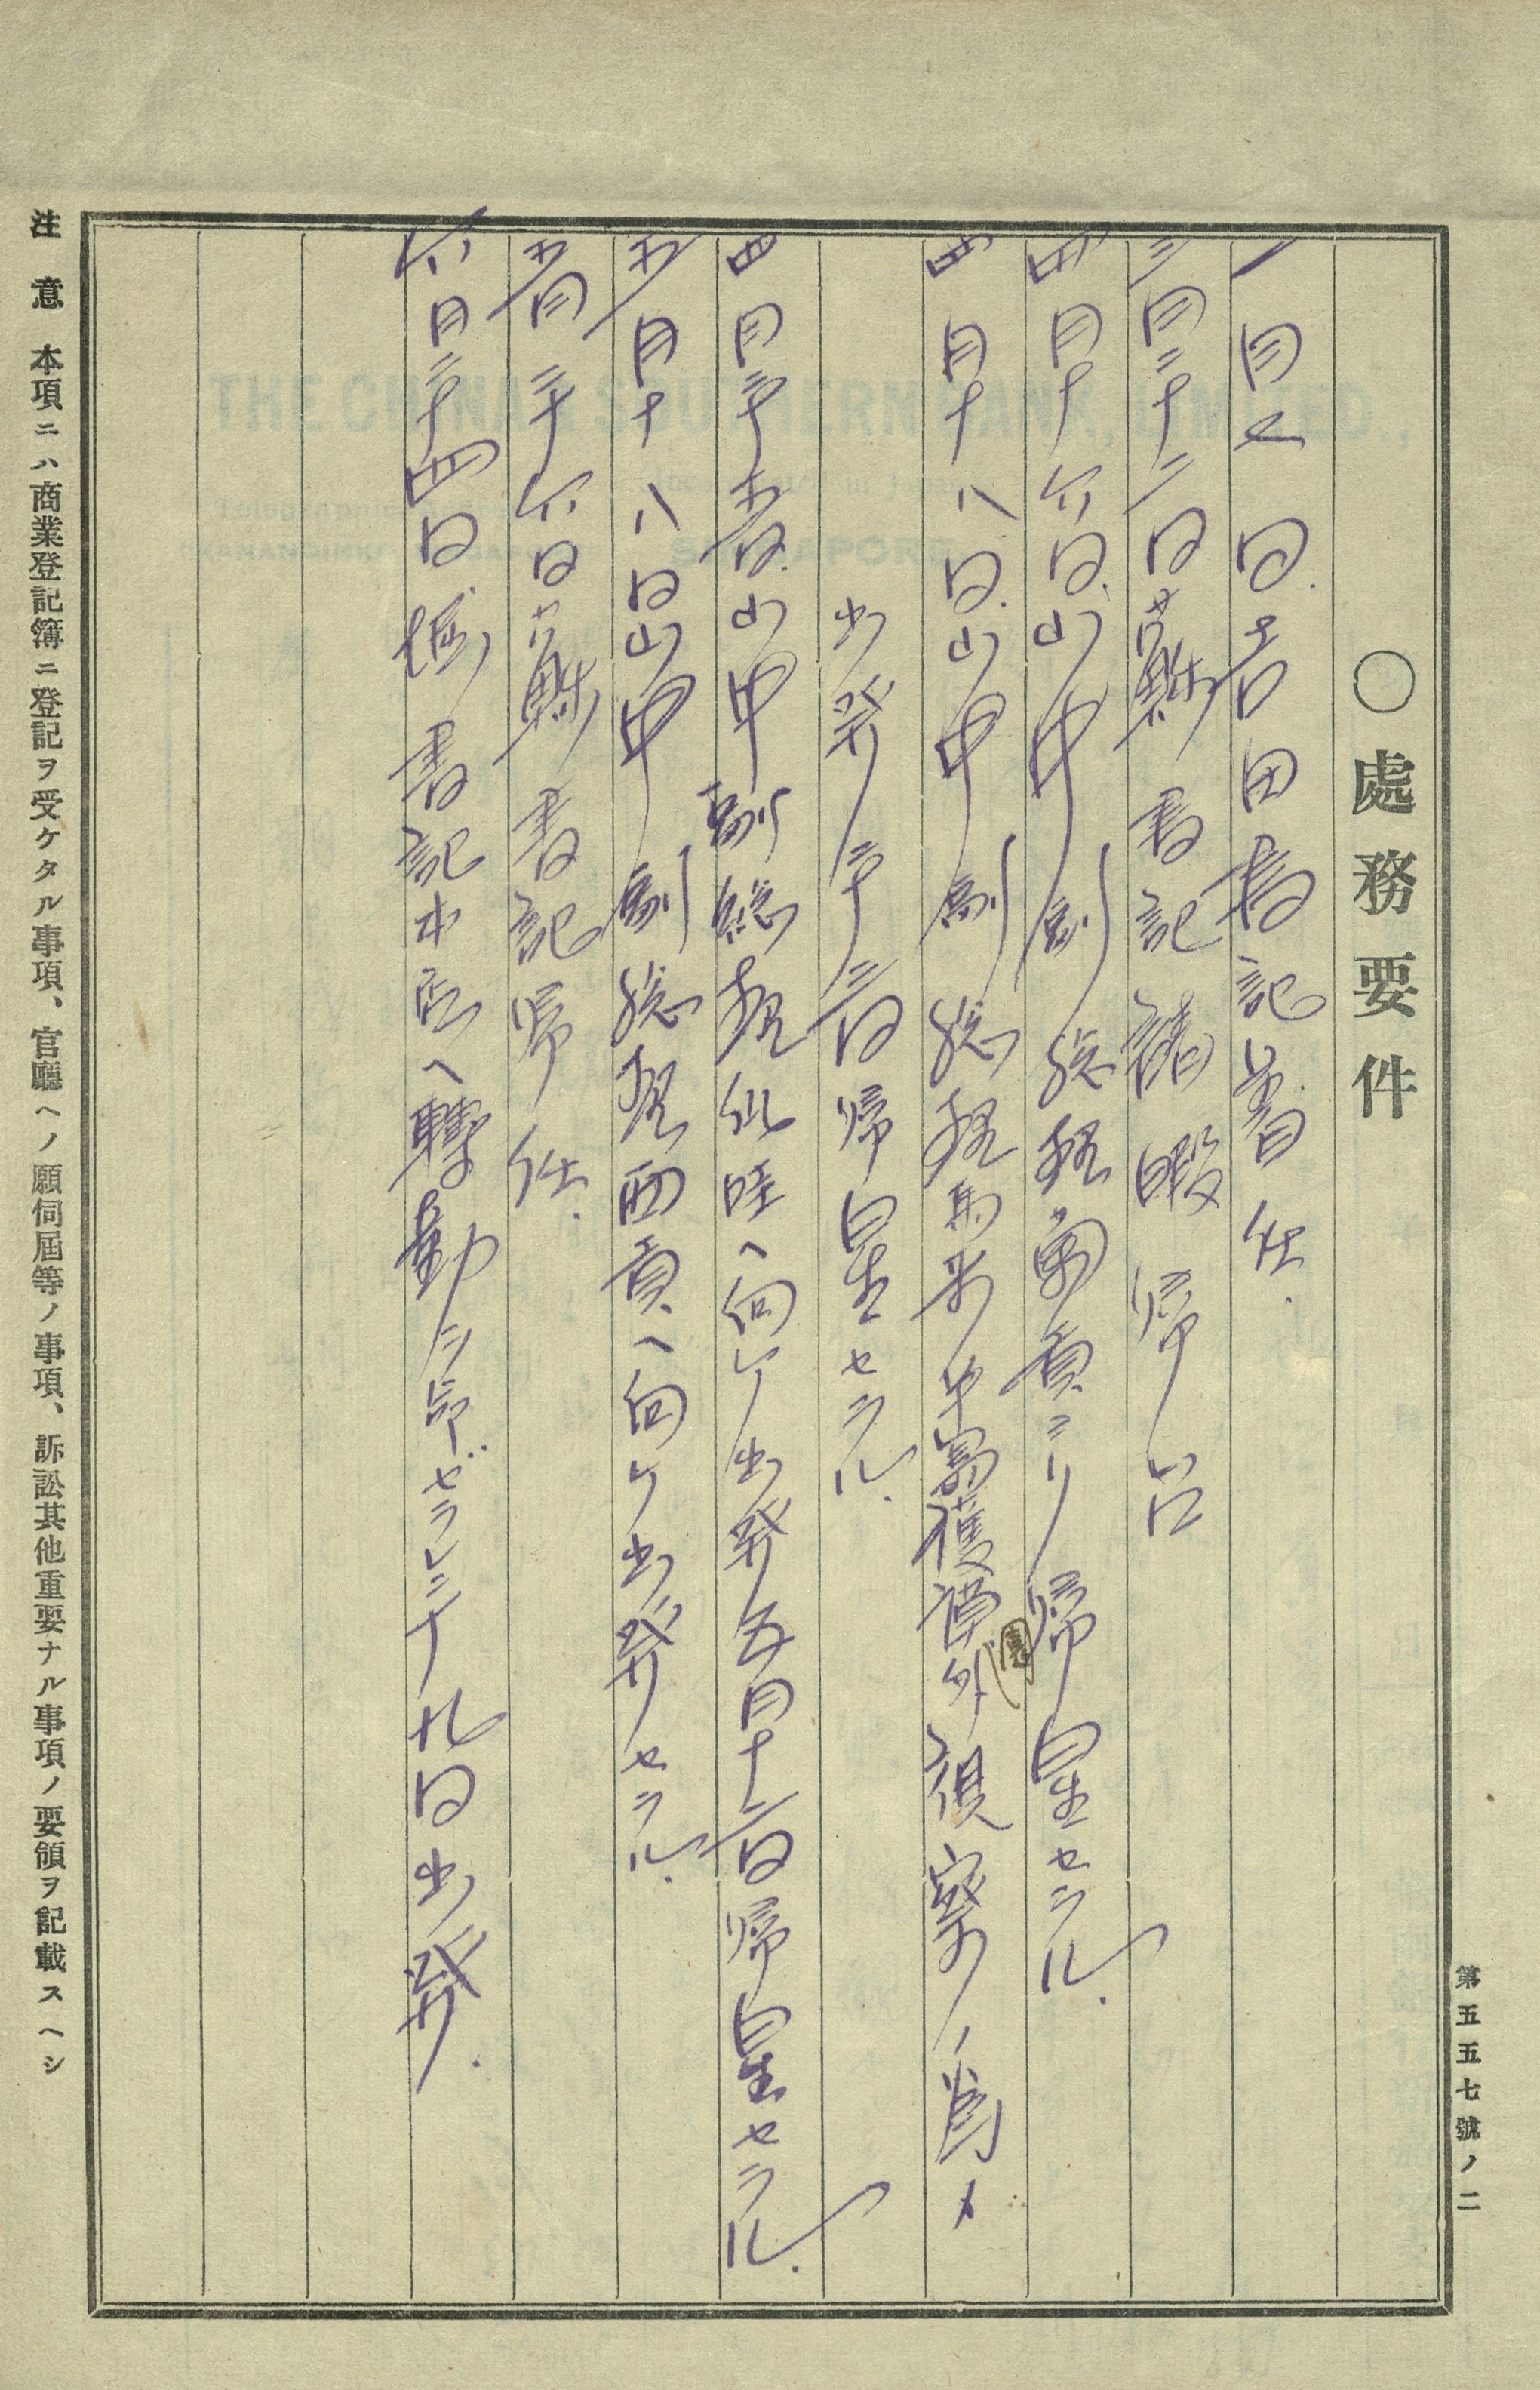 第五五七號ノ二
〇處務要件
一月七日.吉田書記着任.
三月二十二日蘇書記請暇帰台
四月十六日.山中副総理蘭貢ヨリ帰星セラル.
四月十八日.山中副総理馬来半島護謨外視察ノ為メ
出発二十三日帰星セラル.
四月二十五日.山中副総理仙哇ヘ向ケ出発五月十二日帰星セラル.
五月十八日山中副総理西貢ヘ向ケ出発セラル.
五月二十六日蘇書記帰任.
六月二十四日.堀書記本店ヘ轉勤ヲ命ゼラレ二十九日出発.
注意 本項ニハ商業登記簿ニ登記ヲ受ケタル事項、官廳ヘノ願伺屆等ノ事項、訴訟其他重要ナル事項ノ要領ヲ記載スヘシ